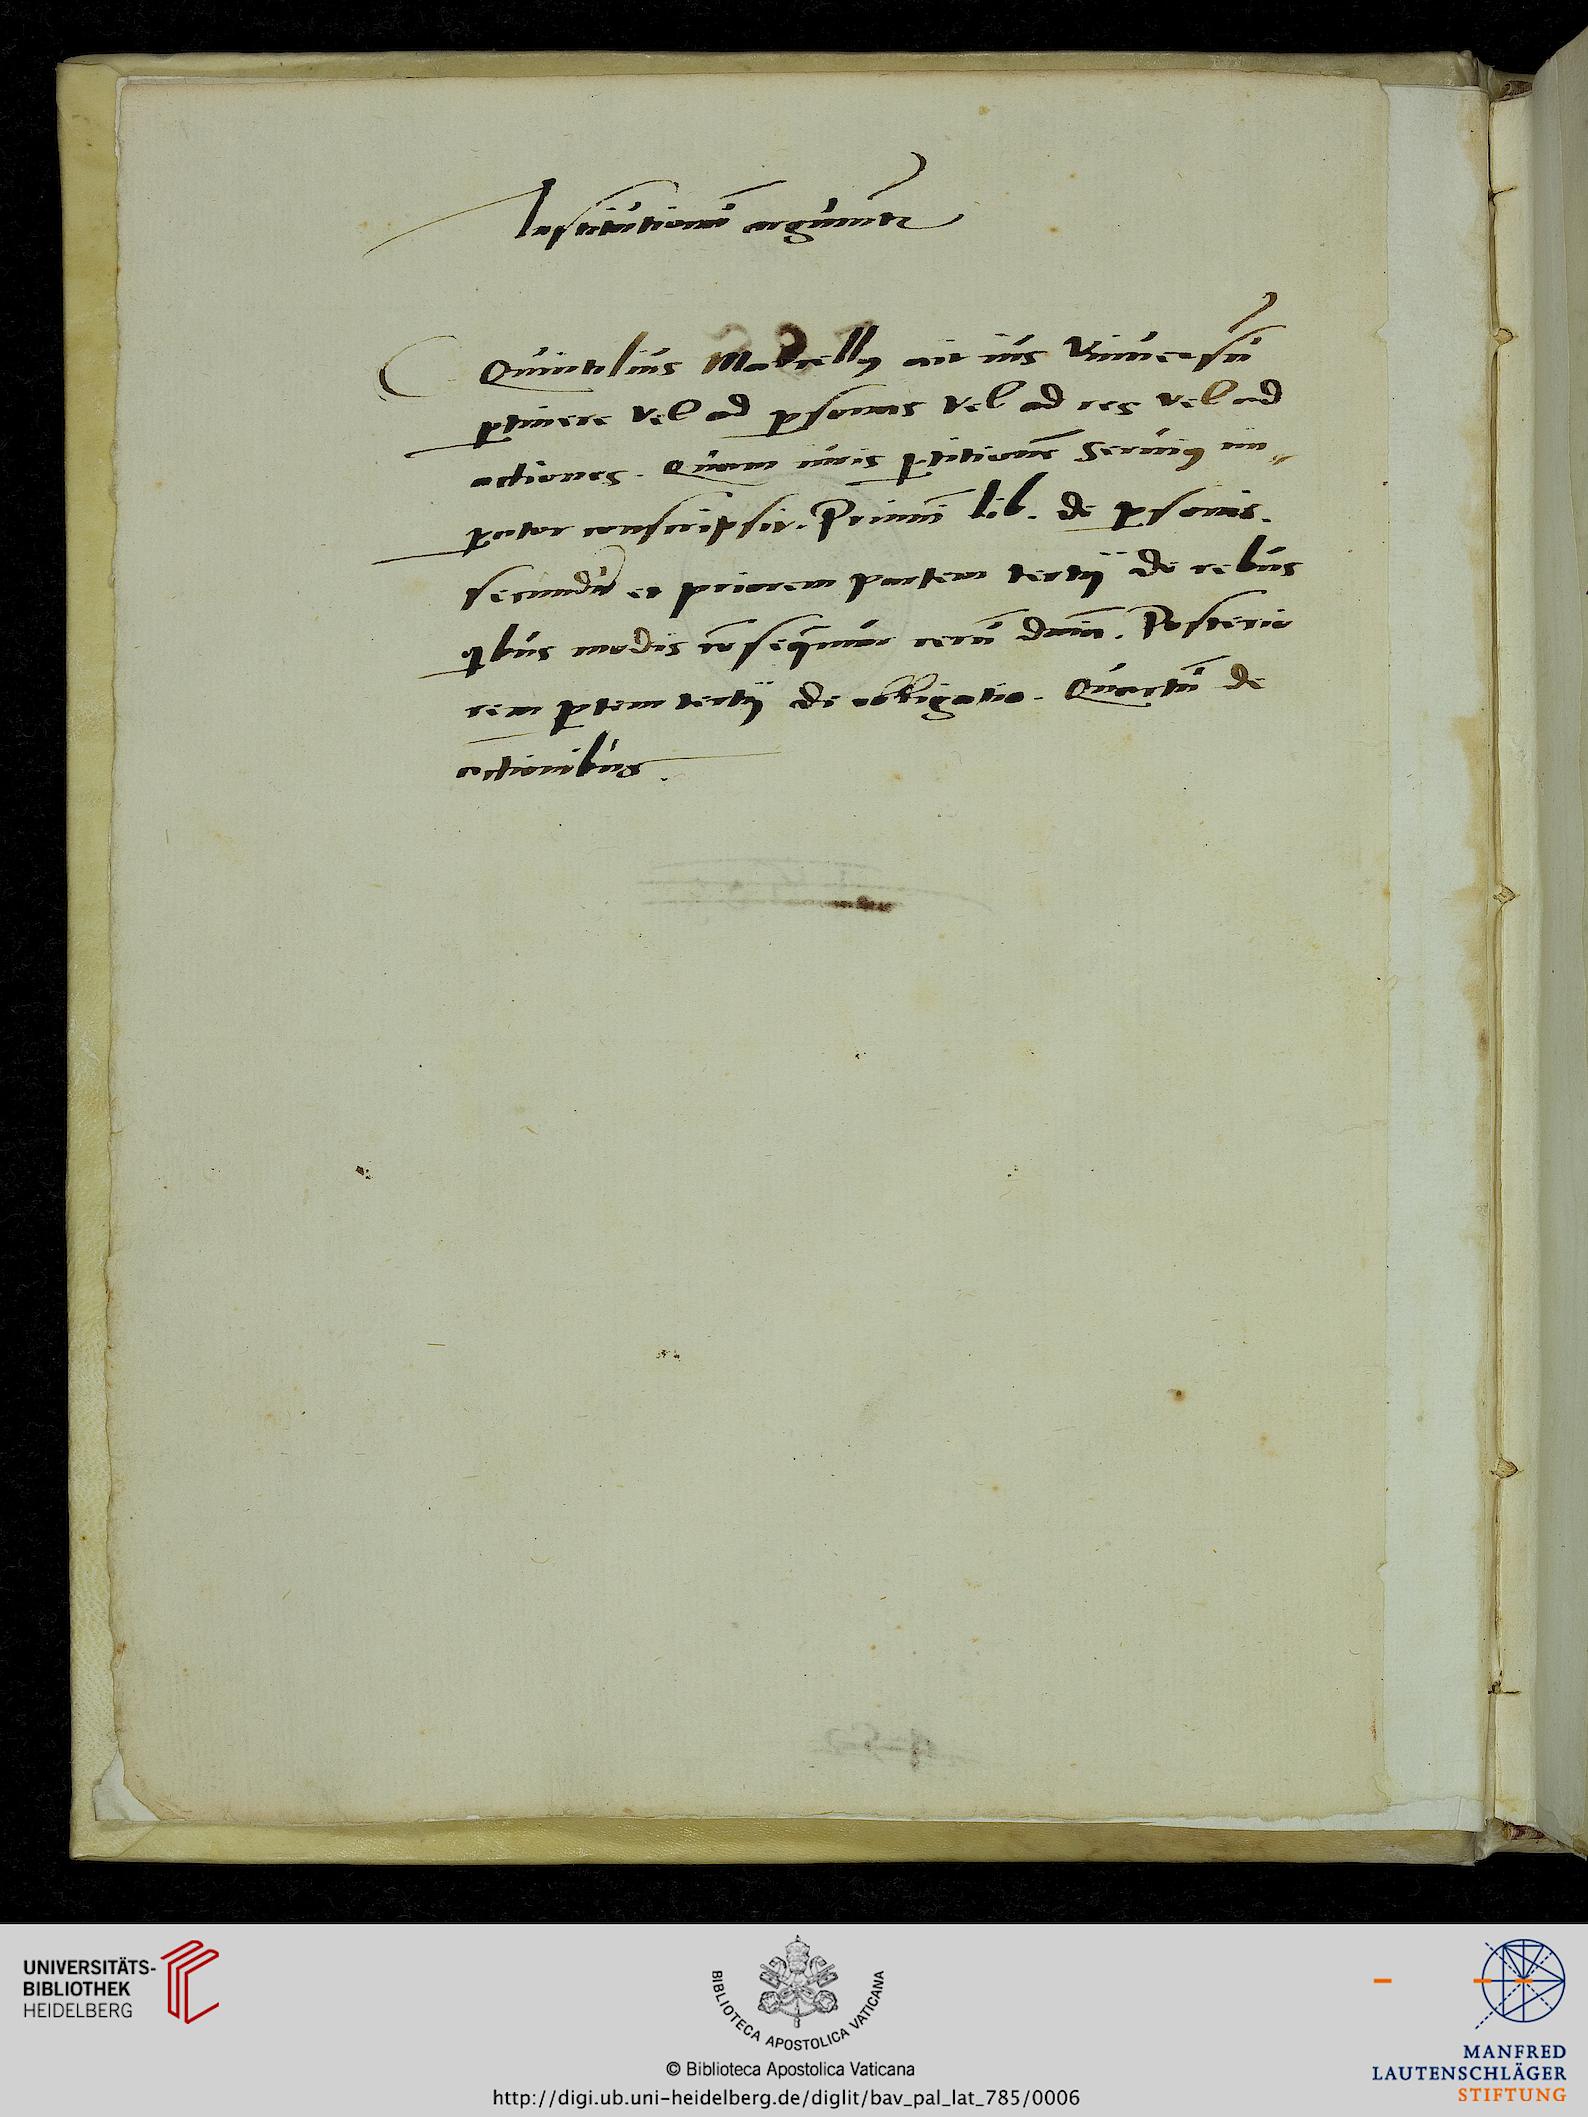 Institutionū argumēta
Quintilius Marcellꝰ ait ius Vniuersū
ꝑtinere vel ad ꝑsonas vel ad res vel ad
actiones. Quam iuris ꝑtitionē Seruiꝰ im„
ꝑator conscripsit. Primū lib. de ꝑsonis.
secundū et priorem partem tertij de rebus
qbus modis cōseq̄mur rerū dnīa. Posterio
rem ꝑtem tertij de obligatio. Quartū de
actionibus.
UNIVERSITÄTS-
BIBLIOTHEK
HEIDELBERG
BIBLIOTECA APOSTOLICA VATICANA
© Biblioteca Apostolica Vaticana
http://digi.ub.uni-heidelberg.de/diglit/bav_pal_lat_785/0006
MANFRED
LAUTENSCHLÄGER
STIFTUNG